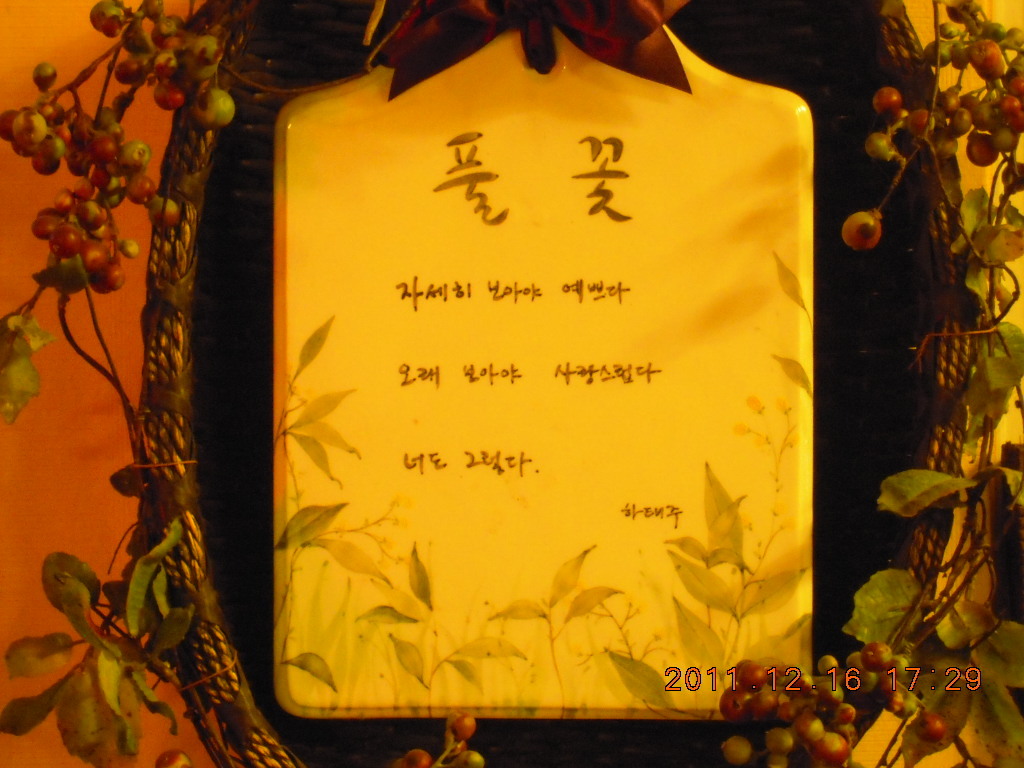 풀 꽃
자세히 보아야 예쁘다
오래 보아야 사랑스럽다
너도 그렇다.
하태주
2011.12.16 17:29